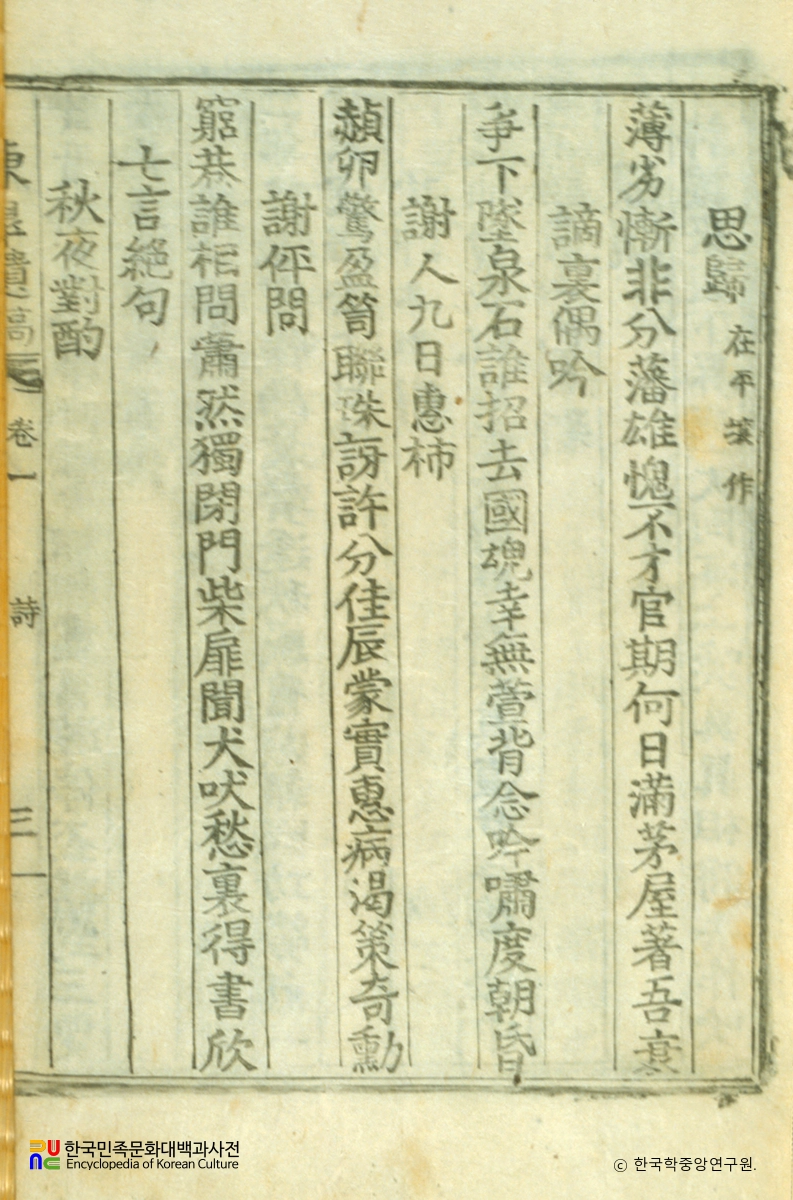 思歸 在平壤作
薄劣慚非分藩雄愧不才官期何日滿茅屋著吾衰
謫裏偶吟
爭下墜泉石誰招去國魂幸無萱背念吟嘯度朝昏
謝人九日惠柿
赬卵驚盈笥聯珠訝許分佳辰蒙實惠病渴策奇勳
謝伻問
窮巷誰相問蕭然獨閉門柴扉聞犬吠愁裏得書欣
七言絕句
秋夜對酌
遺稿 卷一 詩 三
한국민족문화대백과사전
Encyclopedia of Korean Culture
ⓒ 한국학중앙연구원.